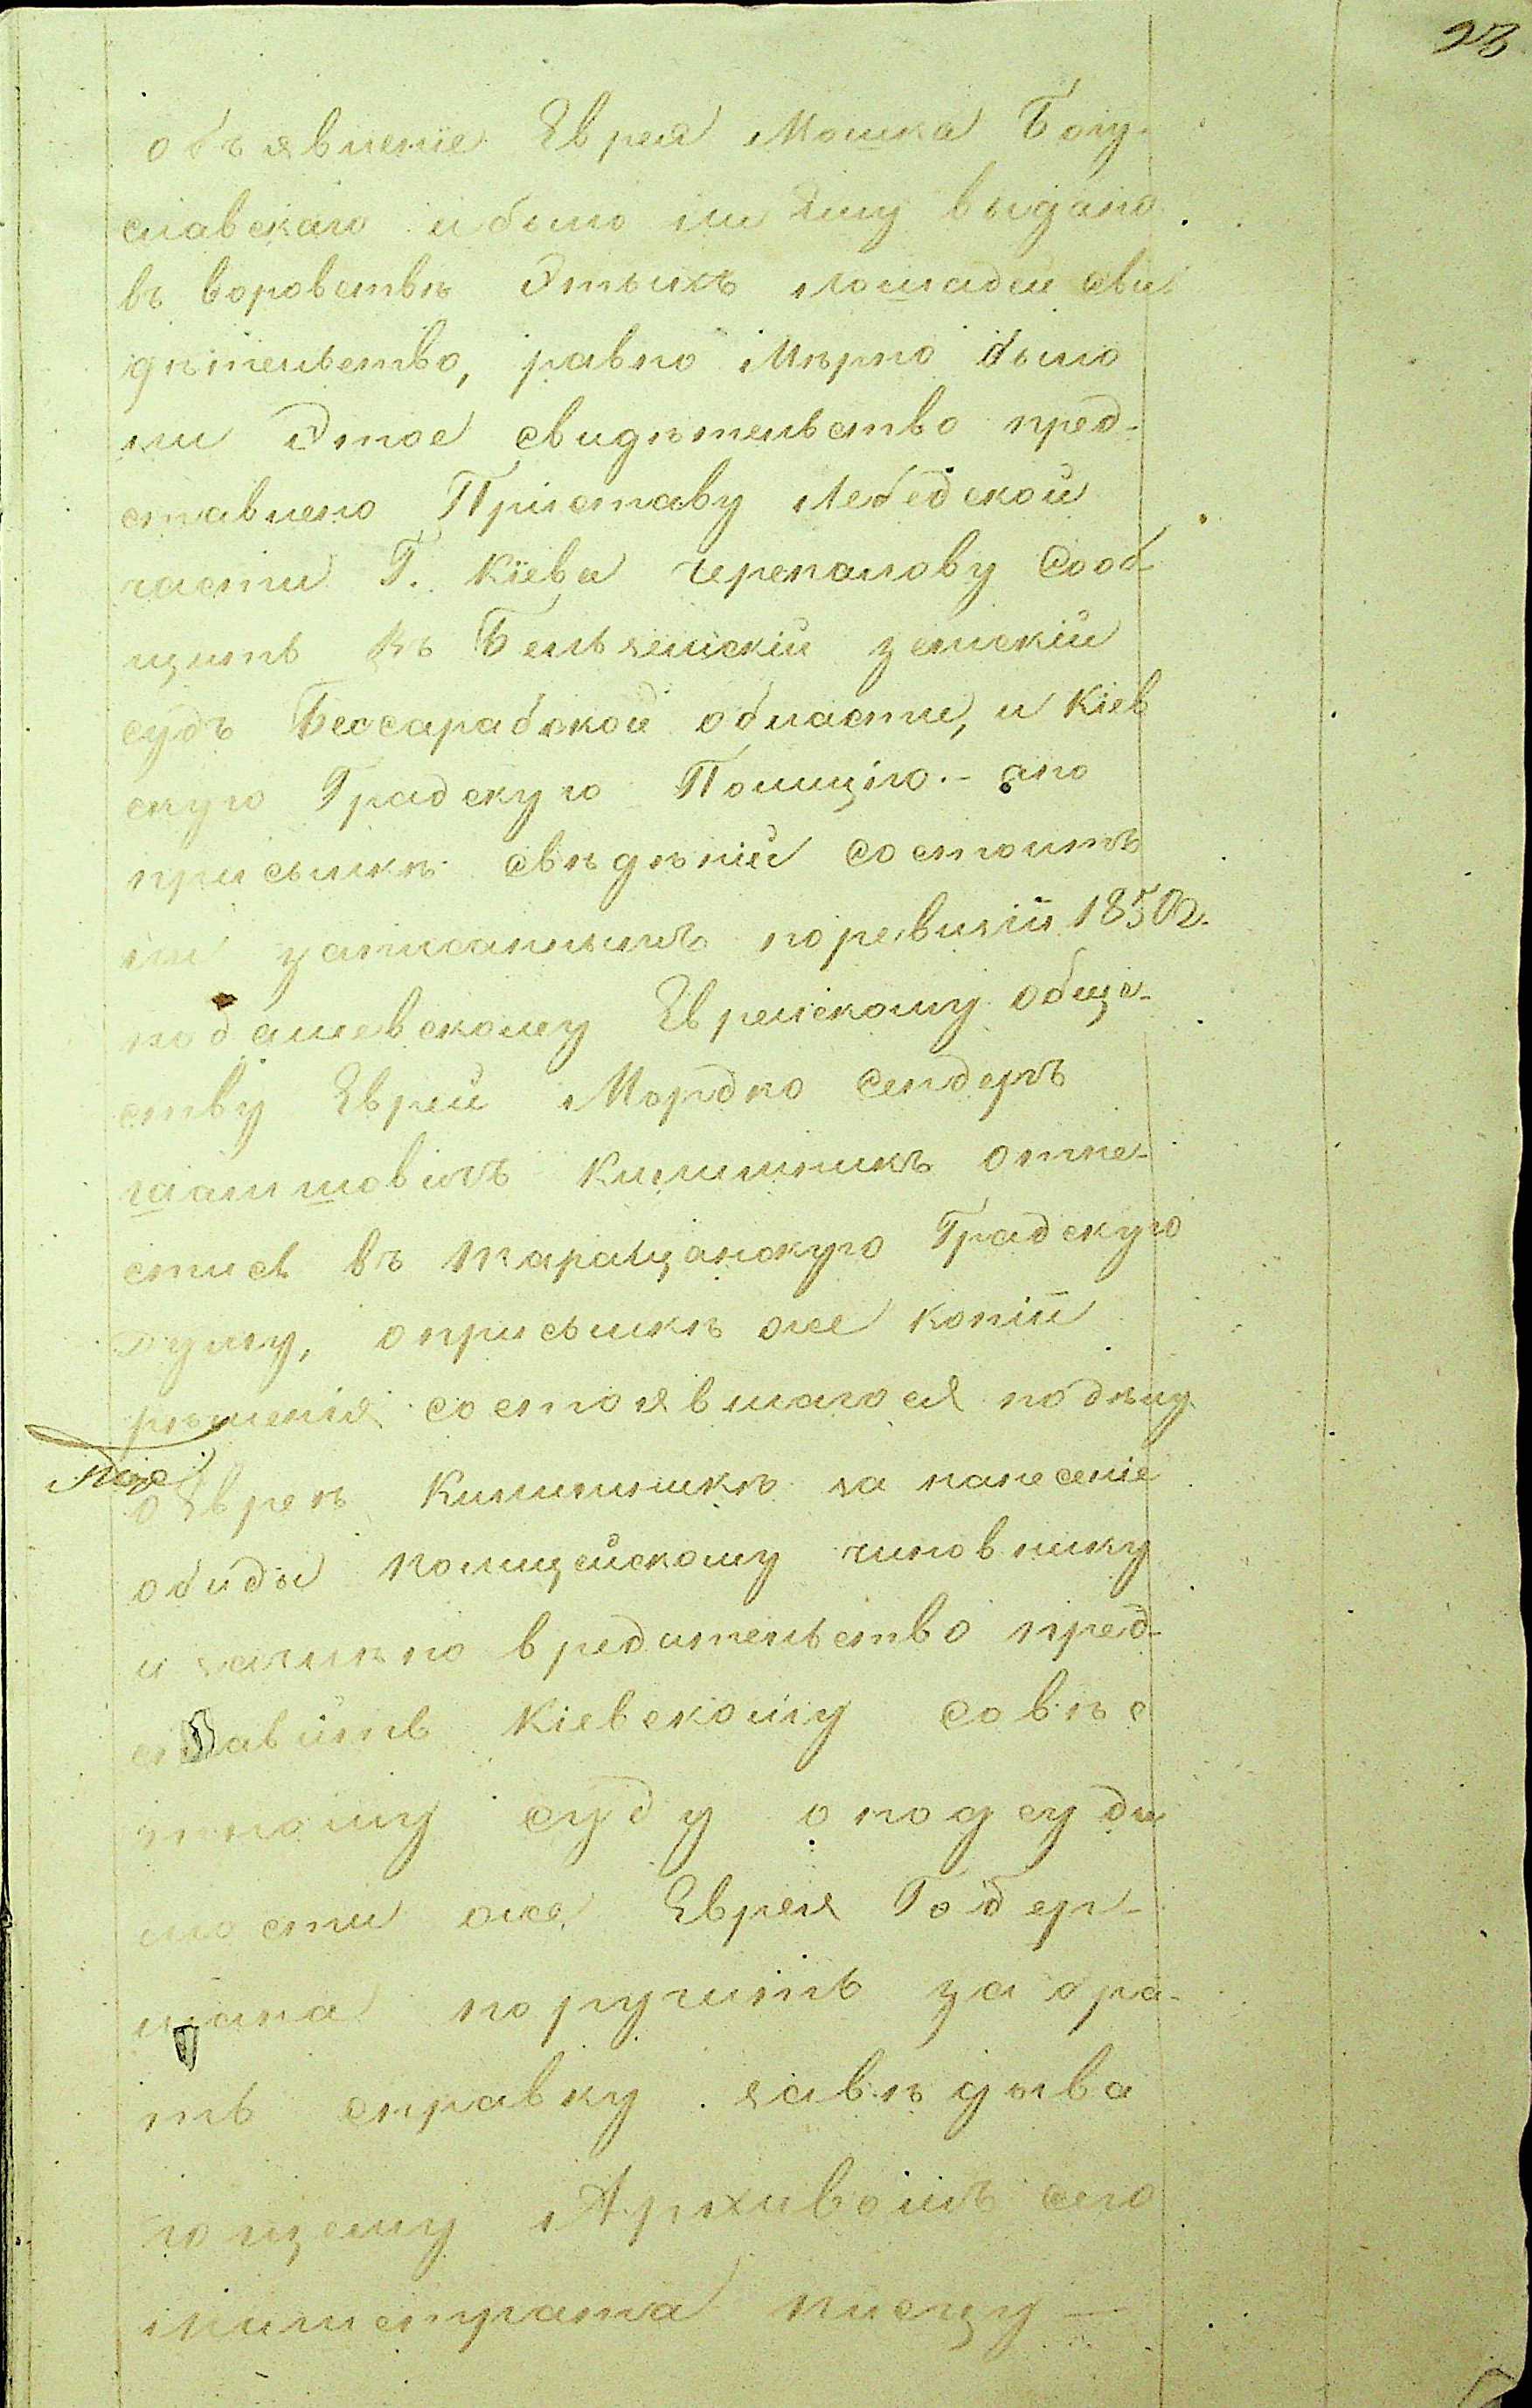 28
объявленіе Еврея Мошка Богу-
славскаго и было ли Ему выдано
въ воровствѣ Этыхъ лошадей сви
дѣтельство, равно мѣрно было
ли Этое свидѣтельство пред-
ставлено Приставу Лебедской
части Г. Кіева Черепанову Сооб
щить въ Бельчейскій земскій
судъ Бессарабской области, и Кіев
скую Градскую Полицію. – а по
присылкѣ свѣдѣній состоитъ
ли записаннымъ по ревизіи 1850 г.
по Ставскому Еврейскому обще-
ству Еврей Мордко Сендеръ
Хаимовичъ Килимникъ отне-
стись въ Таращанскую Градскую
думу, о присылкѣ же копіи
рѣшенія состоявшагося по дѣлу
о Евреѣ Килимникѣ за нанесеніе
обиды Полицейскому чиновнику
и членовредительство пред-
ставить Кіевскому Совѣс
тному суду о подсуди
мости же Еврея Гобер-
мана поручить забра-
ть справку завѣдыва
ющему Архивомъ сего
Магистрата писцу –